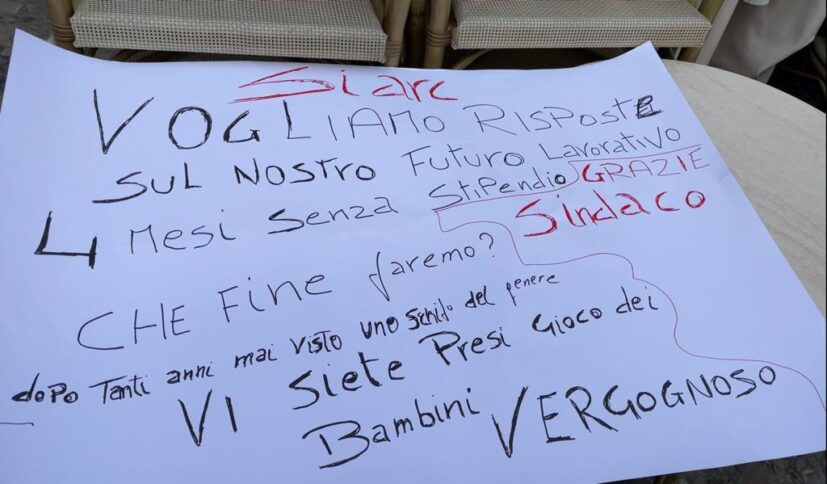 Siarc
VOGLIAMO RISPOSTE
SUL NOSTRO FUTURO LAVORATIVO
4 MESI SENZA STIPENDIO GRAZIE
Sindaco
CHE FINE faremo?
dopo Tanti anni mai visto uno schifo del genere
VI Siete Presi Gioco dei
Bambini VERGOGNOSO